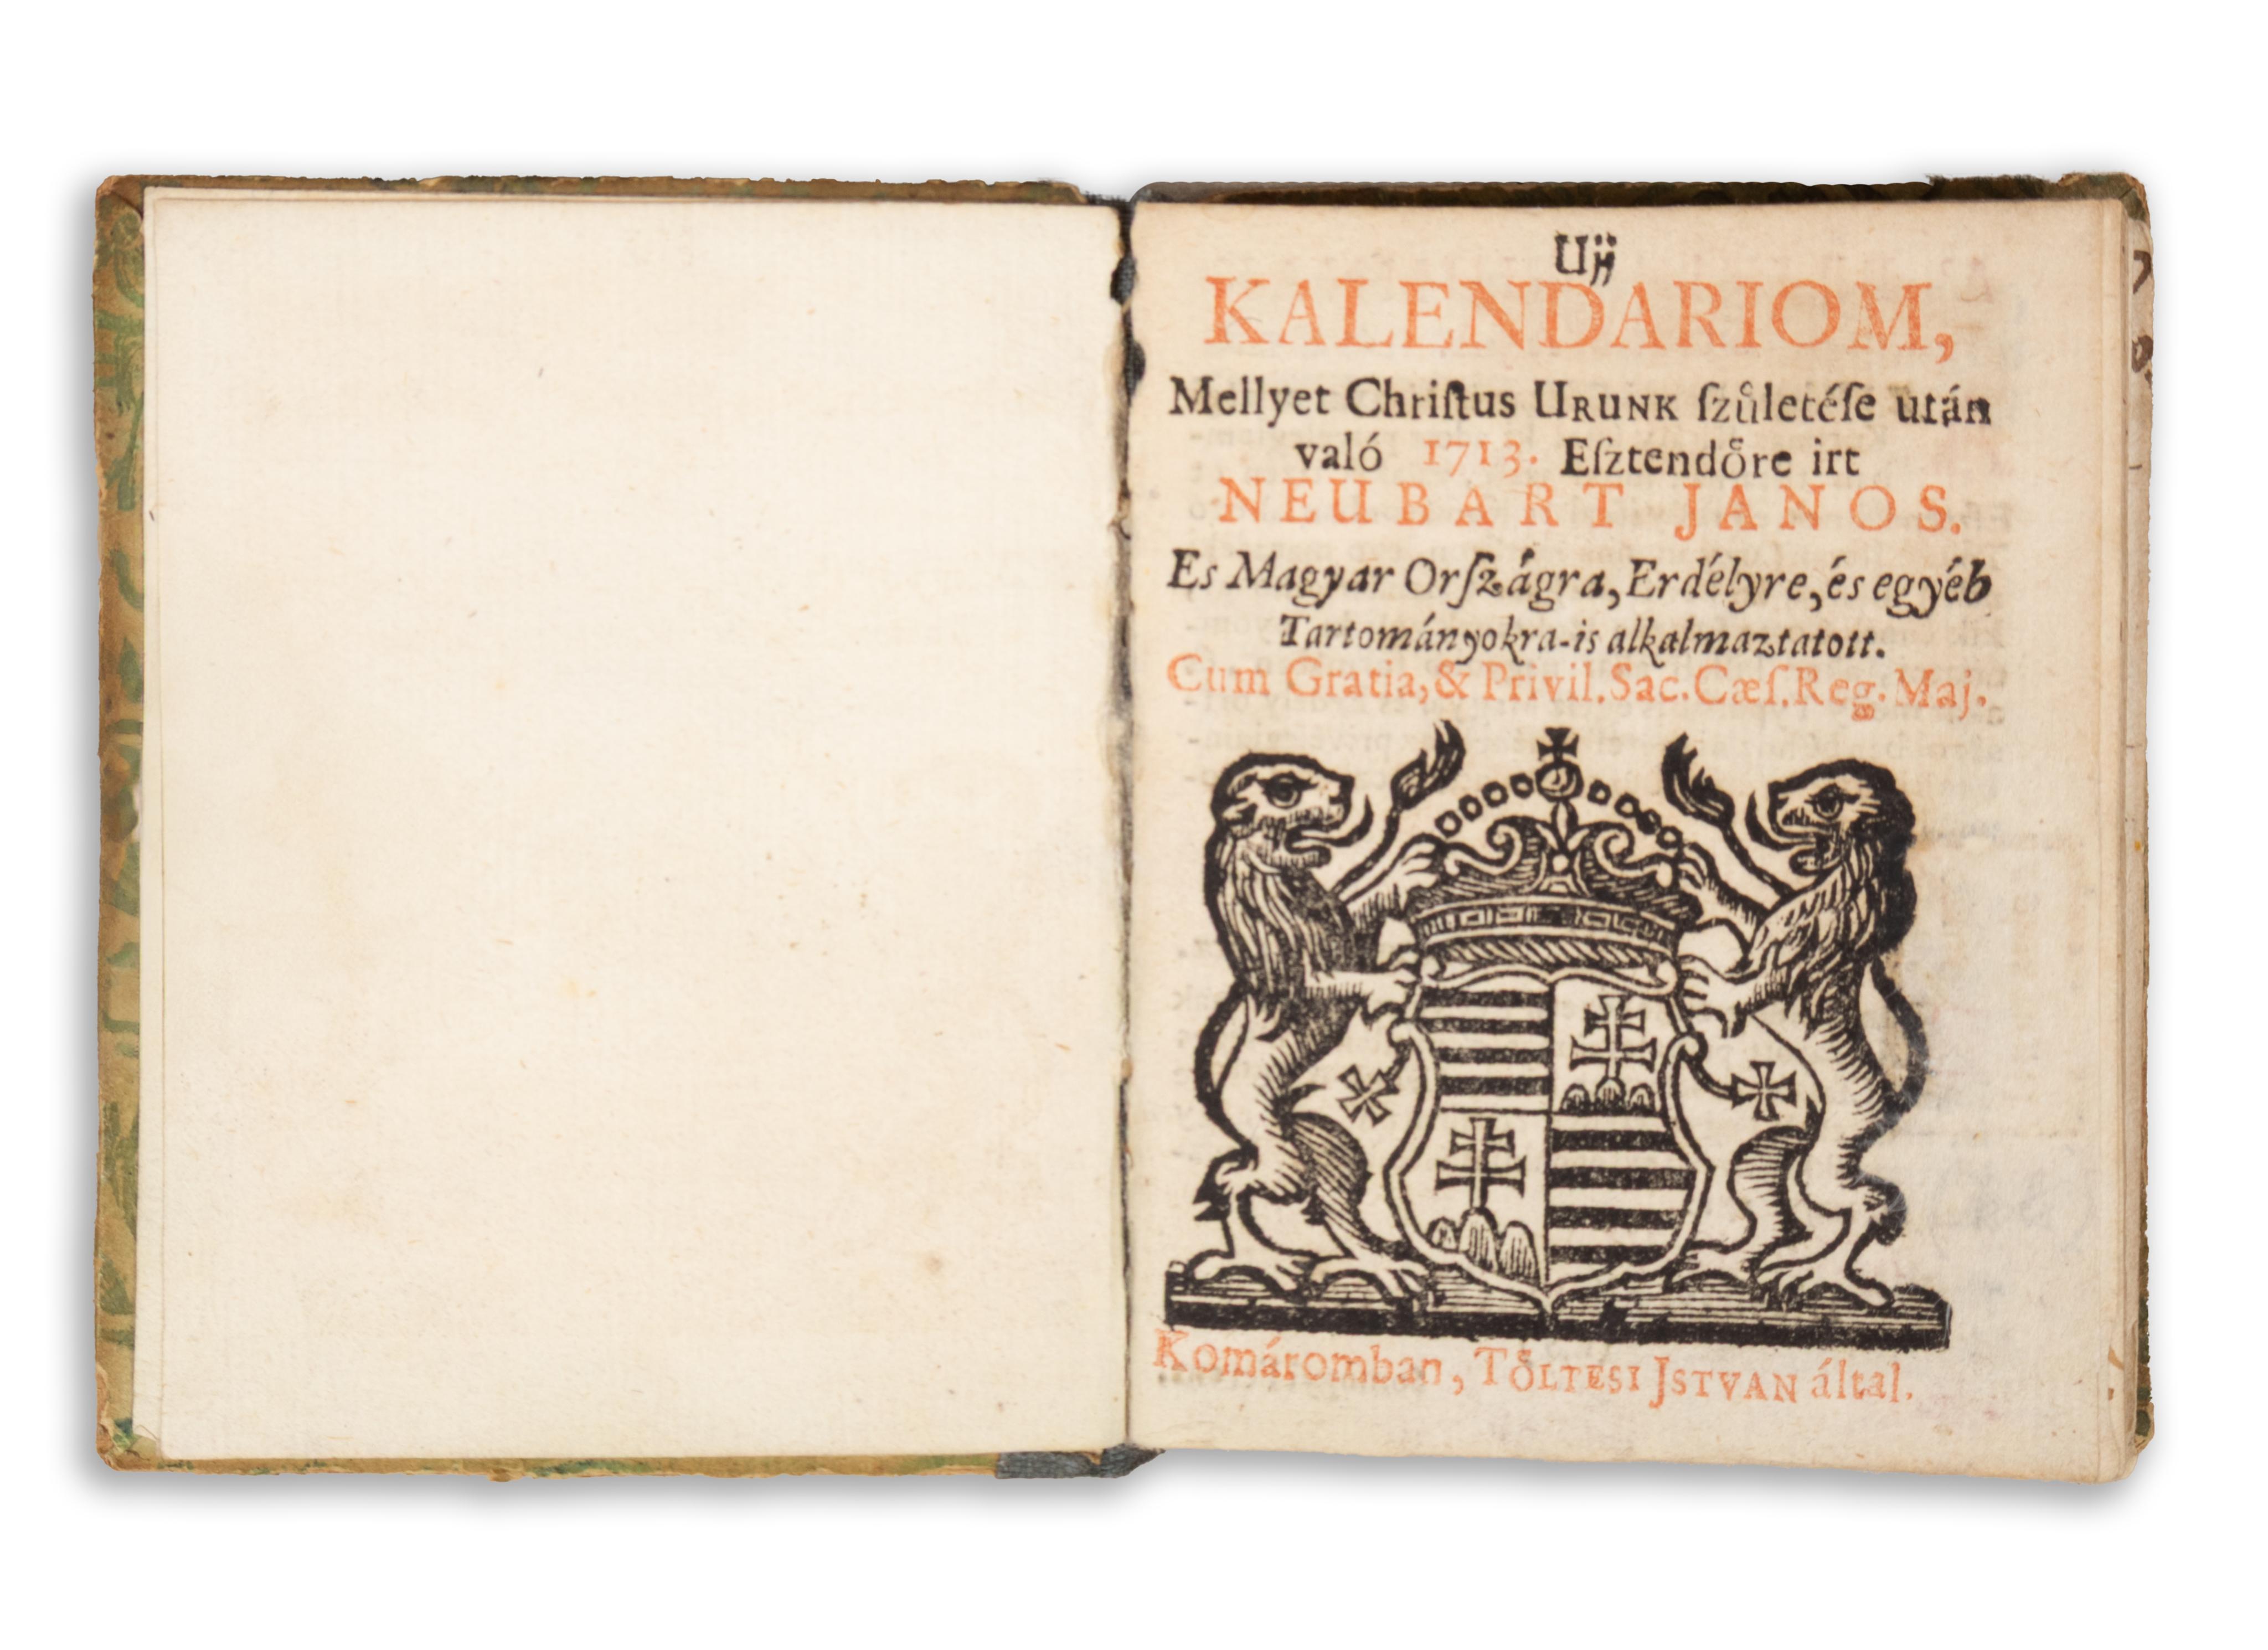 Uj
KALENDARIOM,
Mellyet Chriſtus URUNK ſzůletéſeután
való 1713. Eſztendőre irt
NEUBART JANOS.
Es Magyar Orſzágra, Erdélyre, és egyéb
Tartományokra-is alkalmaztatott.
Cum Gratia, & Privil. Sac. Cæſ. Reg. Maj.
Komáromban, TŐLTESI JSTVAN által.